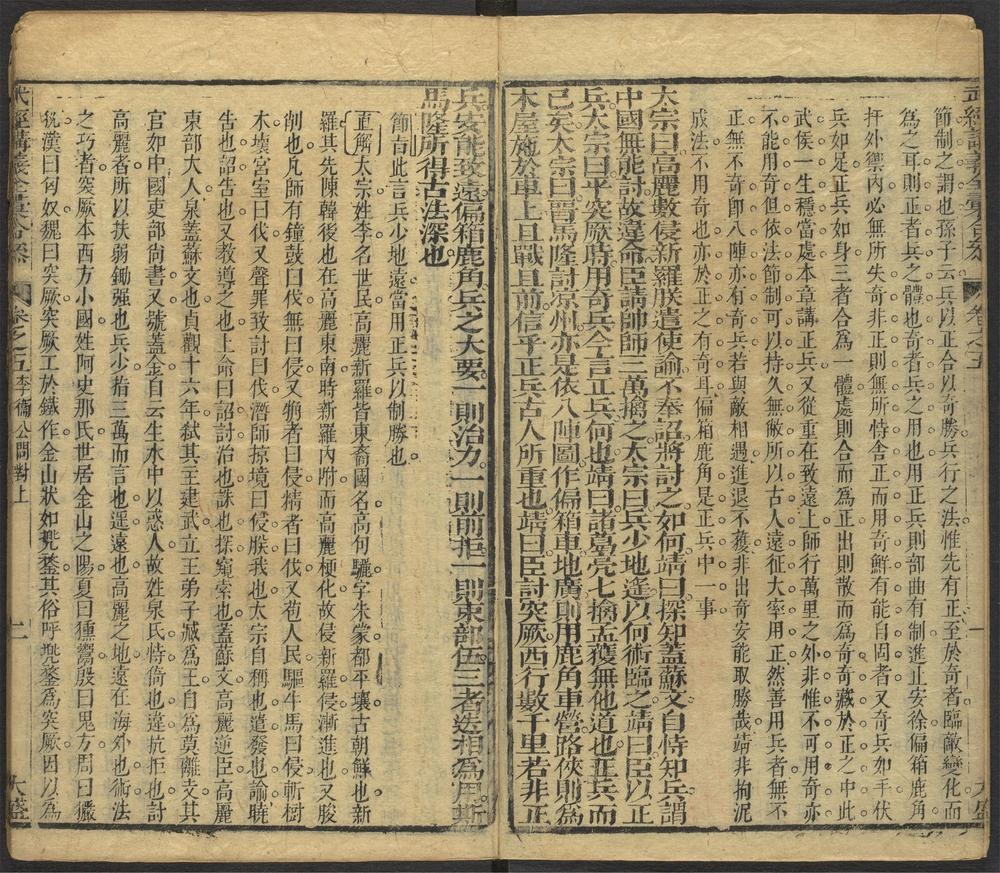 武經講義全彙合參
卷之五
一
大盛
節制之謂也孫子云兵以正合以奇勝兵行之法惟先有正至於奇者臨敵變化而
為之耳則正者兵之體也奇者兵之用也用正兵則部曲有制進止安徐偏箱鹿角
扞外禦內必無所失奇非正則無所恃舍正而用奇鮮有能自固者又奇兵如手伏
兵如足正兵如身三者合為一體處則合而為正出則散而為奇奇藏於正之中此
武侯一生穩當處本章講正兵又從重在致遠上師行萬里之外非惟不可用奇亦
不能用奇但依法節制可以持久無敝所以古人遠征大率用正然善用兵者無不
正無不奇即八陣亦有奇兵若與敵相遇進退不獲非出奇安能取勝哉靖非拘泥
成法不用奇也亦於正之有奇耳偏箱鹿角是正兵中一事
太宗曰高麗數侵新羅朕遣使諭不奉詔將討之如何靖曰探知蓋蘇文自恃知兵謂
中國無能討故違命臣請師三萬擒之太宗曰兵少地遙以何術臨之靖曰臣以正
兵太宗曰平突厥時用奇兵今言正兵何也靖曰諸葛亮七擒孟獲無他道也正兵而
已矣太宗曰晉馬隆討涼州亦是依八陣圖作偏箱車地廣則用鹿角車營路狹則為
木屋施於車上且戰且前信乎正兵古人所重也靖曰臣討突厥西行數千里若非正
兵安能致遠偏箱鹿角兵之大要一則治力一則前拒一則束部伍三者迭相為用斯
馬隆所得古法深也
節旨此言兵少地遠當用正兵以制勝也
直解太宗姓李名世民高麗新羅皆東裔國名高句驪字朱蒙都平壤古朝鮮也新
羅其先陳韓後也在高麗東南時新羅內附而高麗梗化故侵新羅侵漸進也又朘
削也凡師有鐘鼓曰伐無曰侵又觕者曰侵精者曰伐又苞人民驅牛馬曰侵斬樹
木壞宮室曰伐又聲罪致討曰伐潛師掠境曰侵朕我也太宗自稱也遣發也諭曉
告也詔告也又教導之也上命曰詔討治也誅也探窺索也蓋蘇文高麗逆臣高麗
東部大人泉蓋蘇文也貞觀十六年弒其王建武立王弟子臧為王自為莫離支其
官如中國吏部尚書又號蓋金自云生水中以惑人故姓泉氏恃倚也違抗拒也討
高麗者所以扶弱鋤強也兵少指三萬而言也遙遠也高麗之地遠在海外也術法
之巧者突厥本西方小國姓阿史那氏世居金山之陽夏曰獯鬻殷曰鬼方周曰玁
狁漢曰匈奴魏曰突厥突厥工於鐵作金山狀如兜鍪其俗呼兜鍪為突厥因以為
武經講義全彙合參
卷之五
李衞公問對上
二
大盛